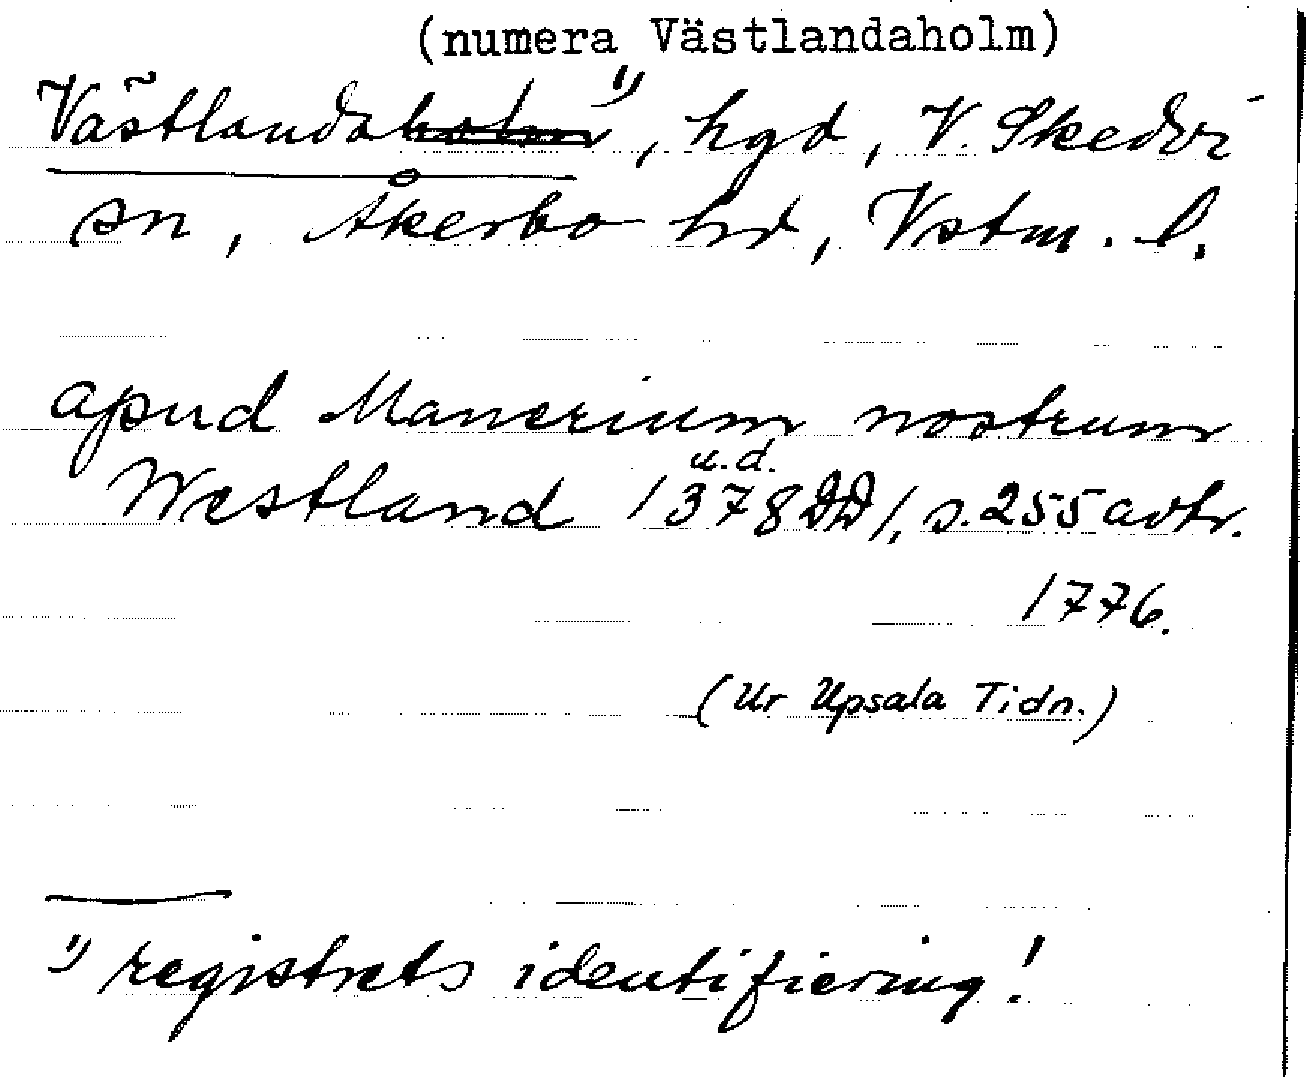 (numera Västlandaholm)
Västlandaholm 1), hgd, V. Skedvi
sn, Åkerbo hd, Vstm. l.
apud Manerium nostrum
u.d.
Westland 1378 DD 1, s. 255 avtr.
1776.
(Ur Upsala Tidn.)
1) registrets identifiering!